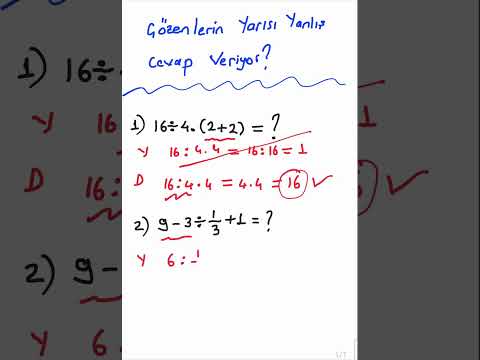 Gözenlerin Yarısı Yanlış
Cevap Veriyor?
1) 16÷4.(2+2) = ?
Y 16:4.4 = 16:16 = 1
D 16:4.4 = 4.4 = 16
2) 9-3÷1/3+1=?
Y 6:1